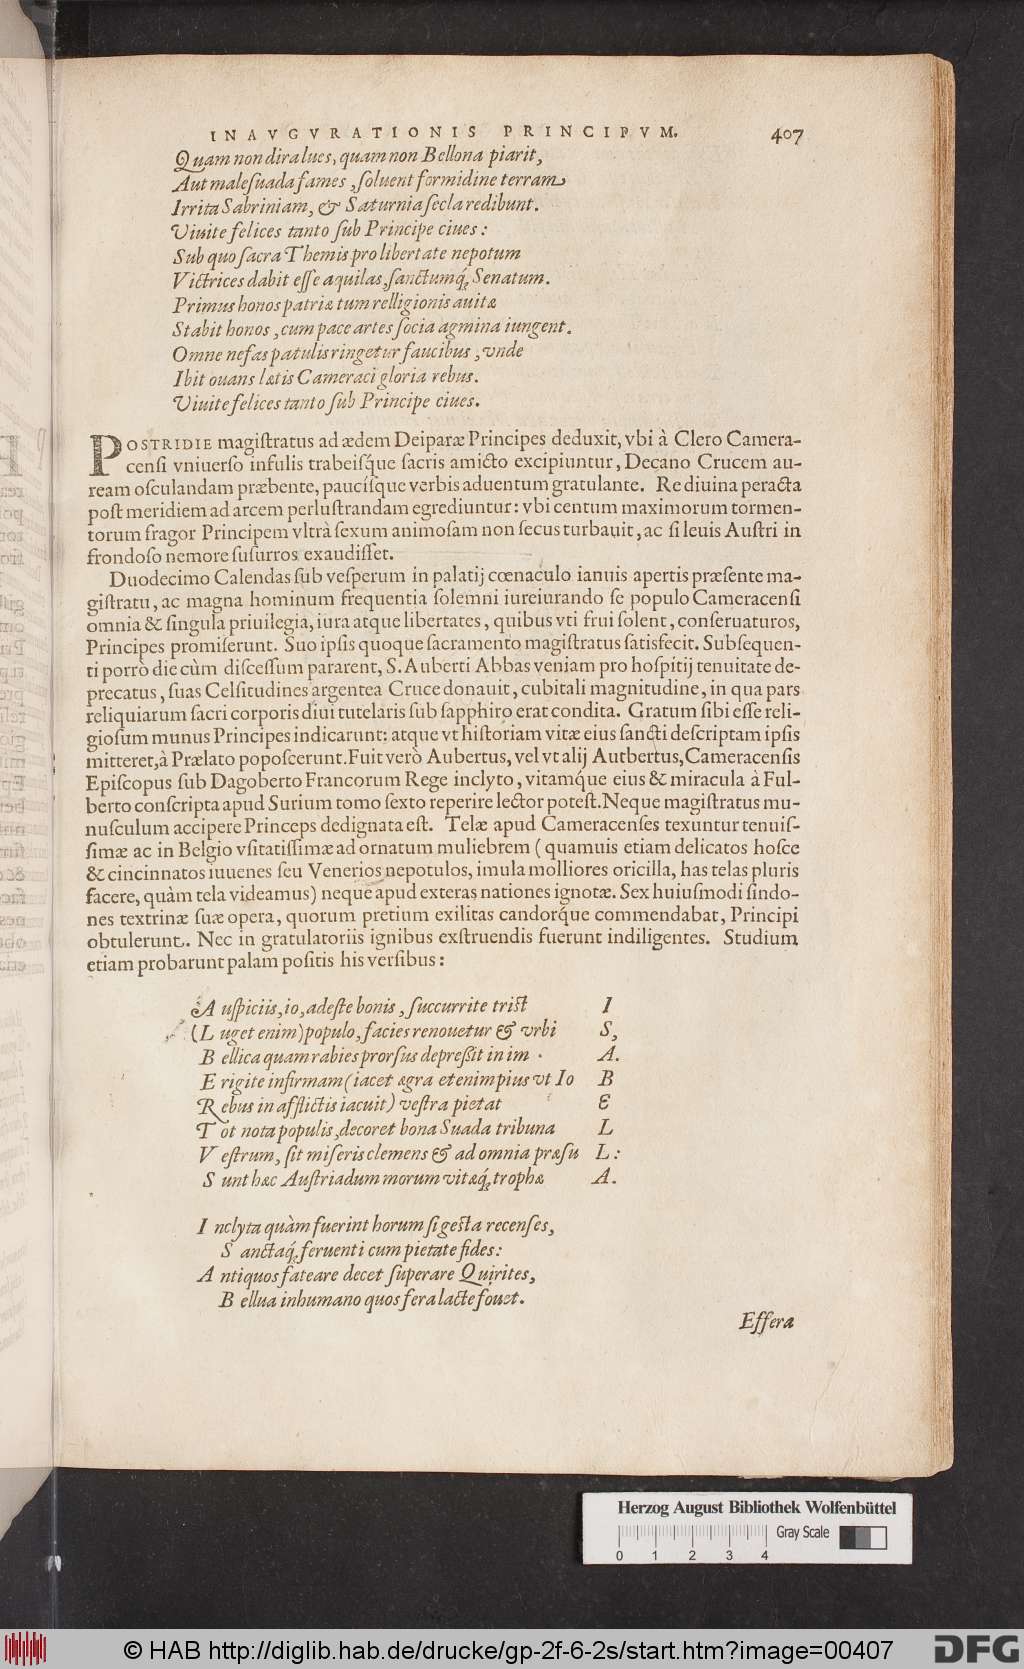 INAVGVRATIONIS PRINCIPVM. 407
Quam non dira lues, quam non Bellona piarit,
Aut malesuada fames, soluent formidine terram
Irrita Sabriniam, & Saturnia secla redibunt.
Viuite felices tanto sub Principe ciues:
Sub quo sacra Themis pro libertate nepotum
Victrices dabit esse aquilas, sanctumq́; Senatum.
Primus honos patriæ tum relligionis auitæ
Stabit honos, cum pace artes socia agmina iungent.
Omne nefas patulis ringetur faucibus, vnde
Ibit ouans lætis Cameraci gloria rebus.
Viuite felices tanto sub Principe ciues.
POSTRIDIE magistratus ad ædem Deiparæ Principes deduxit, vbi à Clero Camera-
censi vniuerso infulis trabeisq́ue sacris amicto excipiuntur, Decano Crucem au-
ream osculandam præbente, paucísque verbis aduentum gratulante. Re diuina peracta
post meridiem ad arcem perlustrandam egrediuntur: vbi centum maximorum tormen-
torum fragor Principem vltrà sexum animosam non secus turbauit, ac si leuis Austri in
frondoso nemore susurros exaudisset.
Duodecimo Calendas sub vesperum in palatij cœnaculo ianuis apertis præsente ma-
gistratu, ac magna hominum frequentia solemni iureiurando se populo Cameracensi
omnia & singula priuilegia, iura atque libertates, quibus vti frui solent, conseruaturos,
Principes promiserunt. Suo ipsis quoque sacramento magistratus satisfecit. Subsequen-
ti porrò die cùm discessum pararent, S. Auberti Abbas veniam pro hospitij tenuitate de-
precatus, suas Celsitudines argentea Cruce donauit, cubitali magnitudine, in qua pars
reliquiarum sacri corporis diui tutelaris sub sapphiro erat condita. Gratum sibi esse reli-
giosum munus Principes indicarunt: atque vt historiam vitæ eius sancti descriptam ipsis
mitteret, à Prælato poposcerunt. Fuit verò Aubertus, vel vt alij Autbertus, Cameracensis
Episcopus sub Dagoberto Francorum Rege inclyto, vitamq́ue eius & miracula à Ful-
berto conscripta apud Surium tomo sexto reperire lector potest. Neque magistratus mu-
nusculum accipere Princeps dedignata est. Telæ apud Cameracenses texuntur tenuis-
simæ ac in Belgio vsitatissimæ ad ornatum muliebrem (quamuis etiam delicatos hosce
& cincinnatos iuuenes seu Venerios nepotulos, imula molliores oricilla, has telas pluris
facere, quàm tela videamus) neque apud exteras nationes ignotæ. Sex huiusmodi sindo-
nes textrinæ suæ opera, quorum pretium exilitas candorq́ue commendabat, Principi
obtulerunt. Nec in gratulatoriis ignibus exstruendis fuerunt indiligentes. Studium
etiam probarunt palam positis his versibus:
A uspiciis, io, adeste bonis, succurrite trist I
(L uget enim) populo, facies renouetur & vrbi S,
B ellica quam rabies prorsus depressit in im A.
E rigite infirmam (iacet ægra etenim pius vt Io B
R ebus in afflictis iacuit) vestra pietat E
T ot nota populis, decoret bona Suada tribuna L
V estrum, sit miseris clemens & ad omnia præsu L:
S unt hæc Austriadum morum vitæq́; trophæ A.
I nclyta quàm fuerint horum si gesta recenses,
S anctaq́; feruenti cum pietate fides:
A ntiquos fateare decet superare Quirites,
B ellua inhumano quos fera lacte fouet.
Effera
Herzog August Bibliothek Wolfenbüttel
Gray Scale
0 1 2 3 4
© HAB http://diglib.hab.de/drucke/gp-2f-6-2s/start.htm?image=00407 DFG